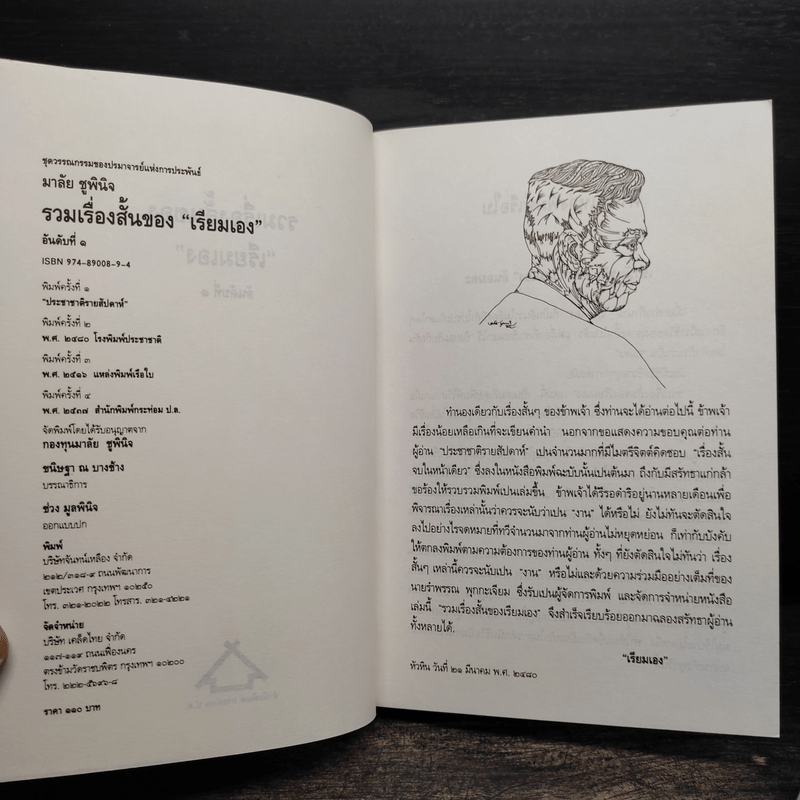 ชุดวรรณกรรมของปรมาจารย์แห่งการประพันธ์
มาลัย ชูพินิจ
รวมเรื่องสั้นของ “เรียมเอง”
อันดับที่ ๑
ISBN 974-89008-9-4
พิมพ์ครั้งที่ ๑
“ประชาชาติรายสัปดาห์”
พิมพ์ครั้งที่ ๒
พ.ศ. ๒๔๘๐ โรงพิมพ์ประชาชาติ
พิมพ์ครั้งที่ ๓
พ.ศ. ๒๕๑๖ แหล่งพิมพ์เรือใบ
พิมพ์ครั้งที่ ๔
พ.ศ. ๒๕๓๗ สำนักพิมพ์กระท่อม ป.ล.
จัดพิมพ์โดยได้รับอนุญาตจาก
กองทุนมาลัย ชูพินิจ
ขนิษฐา ณ บางช้าง
บรรณาธิการ
ช่วง มูลพินิจ
ออกแบบปก
พิมพ์
บริษัทจันทน์เหลือง จำกัด
๒๑๒/๓๑๘-๙ ถนนพัฒนาการ
เขตประเวศ กรุงเทพฯ ๑๐๒๕๐
โทร. ๓๒๑-๒๐๒๒ โทรสาร. ๓๒๑-๔๒๒๑
จัดจำหน่าย
บริษัท เคล็ดไทย จำกัด
๑๑๗-๑๑๙ ถนนเฟื่องนคร
ตรงข้ามวัดราชบพิตร กรุงเทพฯ ๑๐๒๐๐
โทร. ๒๒๒-๕๖๙๖-๘
ราคา ๑๑๐ บาท
ทำนองเดียวกับเรื่องสั้นๆ ของข้าพเจ้า ซึ่งท่านจะได้อ่านต่อไปนี้ ข้าพเจ้า
มีเรื่องน้อยเหลือเกินที่จะเขียนคำนำ นอกจากขอแสดงความขอบคุณต่อท่าน
ผู้อ่าน “ประชาชาติรายสัปดาห์” เปนจำนวนมากที่มีไมตรีจิตต์คิดชอบ “เรื่องสั้น
จบในหน้าเดียว” ซึ่งลงในหนังสือพิมพ์ฉะบับนั้นเปนต้นมา ถึงกับมีสรัทธาแก่กล้า
ขอร้องให้รวบรวมพิมพ์เปนเล่มขึ้น ข้าพเจ้าได้รีรอดำริอยู่นานหลายเดือนเพื่อ
พิจารณาเรื่องเหล่านั้นว่าควรจะนับว่าเปน “งาน” ได้หรือไม่ ยังไม่ทันจะตัดสินใจ
ลงไปอย่างไรจดหมายที่ทวีจำนวนมาจากท่านผู้อ่านไม่หยุดหย่อน ก็เท่ากับบังคับ
ให้ตกลงพิมพ์ตามความต้องการของท่านผู้อ่าน ทั้งๆ ที่ยังตัดสินใจไม่ทันว่า เรื่อง
สั้นๆ เหล่านี้ควรจะนับเปน “งาน” หรือไม่และด้วยความร่วมมืออย่างเต็มที่ของ
นายรำพรรณ พุกกะเจียม ซึ่งรับเปนผู้จัดการพิมพ์ และจัดการจำหน่ายหนังสือ
เล่มนี้ “รวมเรื่องสั้นของเรียมเอง” จึงสำเร็จเรียบร้อยออกมาฉลองสรัทธาผู้อ่าน
ทั้งหลายได้.
“เรียมเอง”
หัวหิน วันที่ ๒๑ มีนาคม พ.ศ. ๒๔๘๐